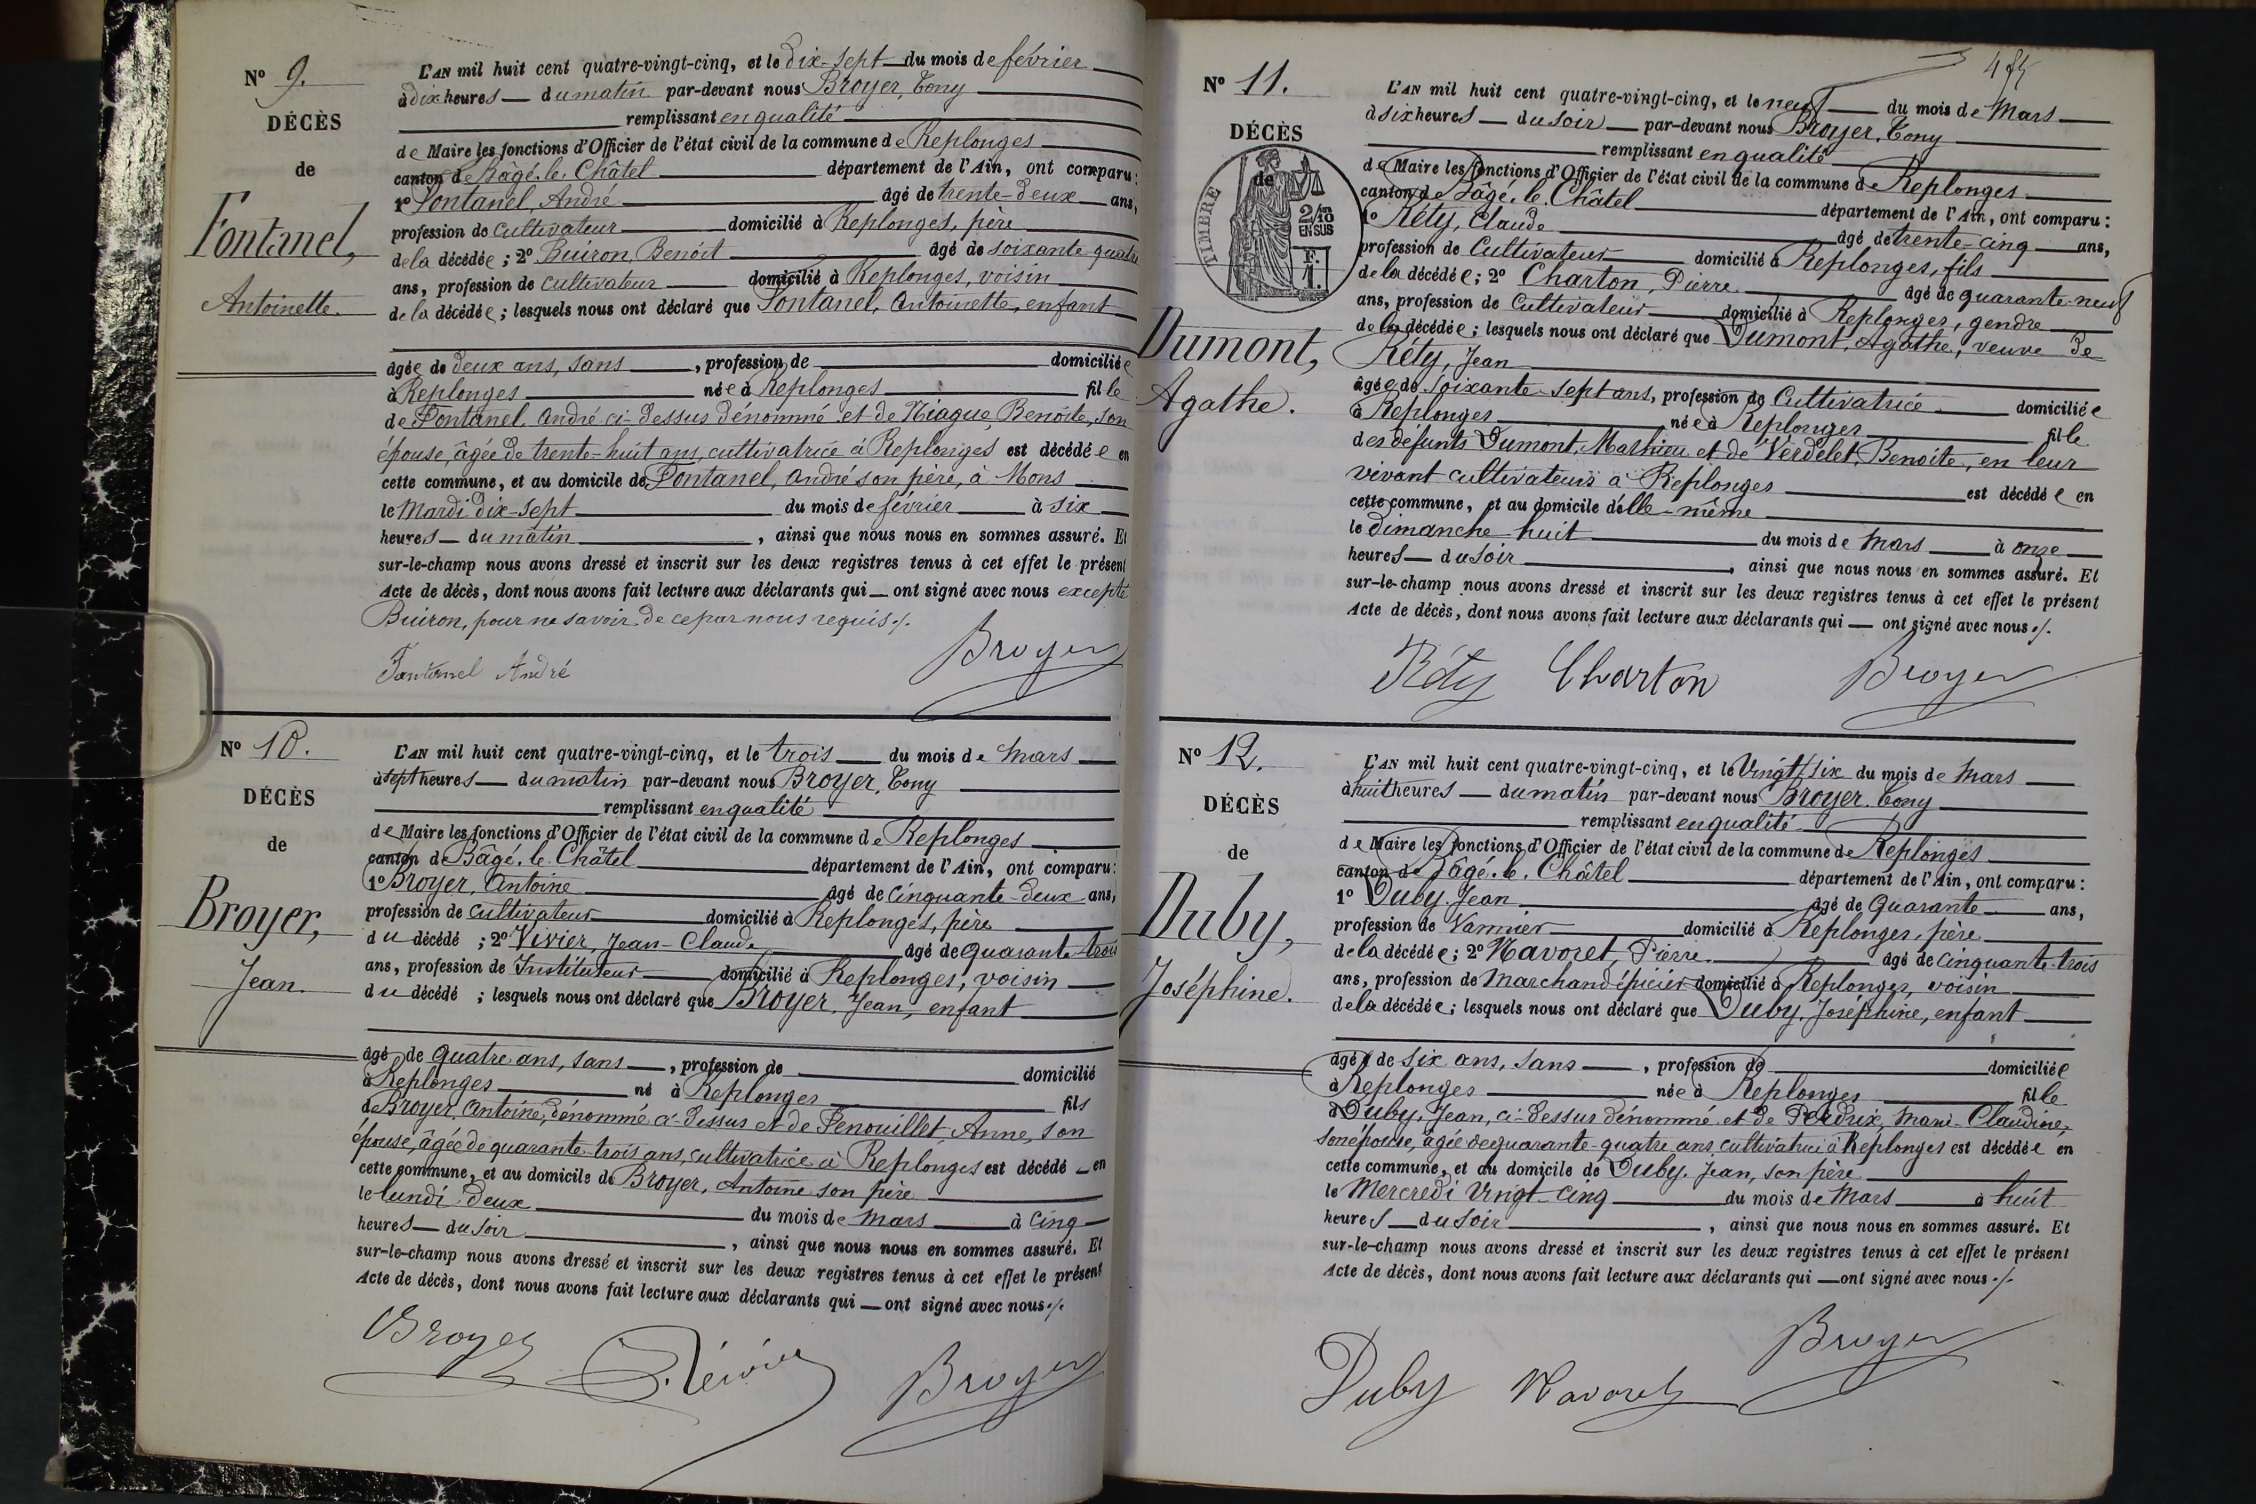 Nº 9.
DÉCÈS
de
Fontanel,
Antoinette.
L'AN mil huit cent quatre-vingt-cinq, et le dix-sept du mois de février
à dix heures du matin par-devant nous Broyer, Tony
remplissant en qualité
de Maire les fonctions d'Officier de l'état civil de la commune de Replonges
canton de Bâgé-le-Châtel département de l'Ain, ont comparu :
1º Fontanel, André âgé de trente-deux ans,
profession de cultivateur domicilié à Replonges, père
de la décédée ; 2º Buiron, Benoît âgé de soixante quatre
ans, profession de cultivateur domicilié à Replonges, voisin
de la décédée ; lesquels nous ont déclaré que Fontanel, Antoinette, enfant
âgée de deux ans, sans , profession de domiciliée
à Replonges née à Replonges fille
de Fontanel André ci-dessus dénommé et de Niogue, Benoîte, son
épouse, âgée de trente-huit ans, cultivatrice à Replonges est décédée en
cette commune, et au domicile de Fontanel, André son père, à Mons
le Mardi dix-sept du mois de février à six
heures du matin , ainsi que nous nous en sommes assuré. Et
sur-le-champ nous avons dressé et inscrit sur les deux registres tenus à cet effet le présent
Acte de décès, dont nous avons fait lecture aux déclarants qui ont signé avec nous excepté
Buiron, pour ne savoir de ce par nous requis ./.
Fontanel André Broyer
Nº 10.
DÉCÈS
de
Broyer,
Jean.
L'AN mil huit cent quatre-vingt-cinq, et le trois du mois de Mars
à sept heures du matin par-devant nous Broyer, Tony
remplissant en qualité
de Maire les fonctions d'Officier de l'état civil de la commune de Replonges
canton de Bâgé-le-Châtel département de l'Ain, ont comparu :
1º Broyer, Antoine âgé de cinquante-deux ans,
profession de cultivateur domicilié à Replonges, père
du décédé ; 2º Vivier, Jean-Claude âgé de quarante-trois
ans, profession de Instituteur domicilié à Replonges, voisin
du décédé ; lesquels nous ont déclaré que Broyer, Jean, enfant
âgé de quatre ans, sans , profession de domicilié
à Replonges né à Replonges fils
de Broyer, Antoine, dénommé ci-dessus et de Fenouillet, Anne, son
épouse, âgée de quarante-trois ans, cultivatrice à Replonges est décédé en
cette commune, et au domicile de Broyer, Antoine son père
le lundi deux du mois de Mars à cinq
heures du soir , ainsi que nous nous en sommes assuré. Et
sur-le-champ nous avons dressé et inscrit sur les deux registres tenus à cet effet le présent
Acte de décès, dont nous avons fait lecture aux déclarants qui ont signé avec nous ./.
Broyer Broyer
Nº 11.
DÉCÈS
de
TIMBRE
2/10
EN SUS
F.
1.
Dumont,
Agathe.
L'AN mil huit cent quatre-vingt-cinq, et le neuf du mois de Mars
à six heures du soir par-devant nous Broyer, Tony
remplissant en qualité
de Maire les fonctions d'Officier de l'état civil de la commune de Replonges
canton de Bâgé-le-Châtel département de l'Ain, ont comparu :
1º Réty, Claude âgé de trente-cinq ans,
profession de Cultivateur domicilié à Replonges, fils
de la décédée ; 2º Charton, Pierre âgé de quarante-neuf
ans, profession de Cultivateur domicilié à Replonges, gendre
de la décédée ; lesquels nous ont déclaré que Dumont, Agathe, veuve de
Réty, Jean
âgée de soixante-sept ans, profession de Cultivatrice domiciliée
à Replonges née à Replonges fille
des défunts Dumont, Mathieu et de Verdelet, Benoîte, en leur
vivant cultivateurs à Replonges est décédée en
cette commune, et au domicile d'elle-même
le dimanche huit du mois de Mars à onze
heures du soir , ainsi que nous nous en sommes assuré. Et
sur-le-champ nous avons dressé et inscrit sur les deux registres tenus à cet effet le présent
Acte de décès, dont nous avons fait lecture aux déclarants qui ont signé avec nous ./.
Réty Charton Broyer
Nº 12.
DÉCÈS
de
Duby,
Joséphine.
L'AN mil huit cent quatre-vingt-cinq, et le Vingt-six du mois de Mars
à huit heures du matin par-devant nous Broyer, Tony
remplissant en qualité
de Maire les fonctions d'Officier de l'état civil de la commune de Replonges
canton de Bâgé-le-Châtel département de l'Ain, ont comparu :
1º Duby, Jean âgé de quarante ans,
profession de Vannier domicilié à Replonges, père
de la décédée ; 2º Navoret, Pierre âgé de cinquante-trois
ans, profession de Marchand épicier domicilié à Replonges, voisin
de la décédée ; lesquels nous ont déclaré que Duby, Joséphine, enfant
âgé de six ans, sans , profession de domiciliée
à Replonges née à Replonges fille
de Duby, Jean, ci-dessus dénommé et de Perdrix, Marie-Claudine,
son épouse, âgée de quarante-quatre ans, cultivatrice à Replonges est décédée en
cette commune, et au domicile de Duby, Jean, son père
le Mercredi vingt-cinq du mois de Mars à huit
heures du soir , ainsi que nous nous en sommes assuré. Et
sur-le-champ nous avons dressé et inscrit sur les deux registres tenus à cet effet le présent
Acte de décès, dont nous avons fait lecture aux déclarants qui ont signé avec nous ./.
Duby Navoret Broyer